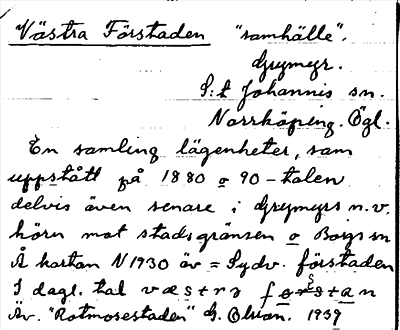 Västra Förstaden "samhälle".
Grymyr.
S:t Johannis sn.
Norrköping. Ögl.
En samling lägenheter, som
uppstått på 1880 o 90-talen
delvis även senare i Grymyrs n.v.
hörn mot stadsgränsen o Borgs sn
Å kartan N1930 äv = Sydv. förstaden
I dagl. tal
Äv. "Rotmosestaden" G. Ohson. 1939